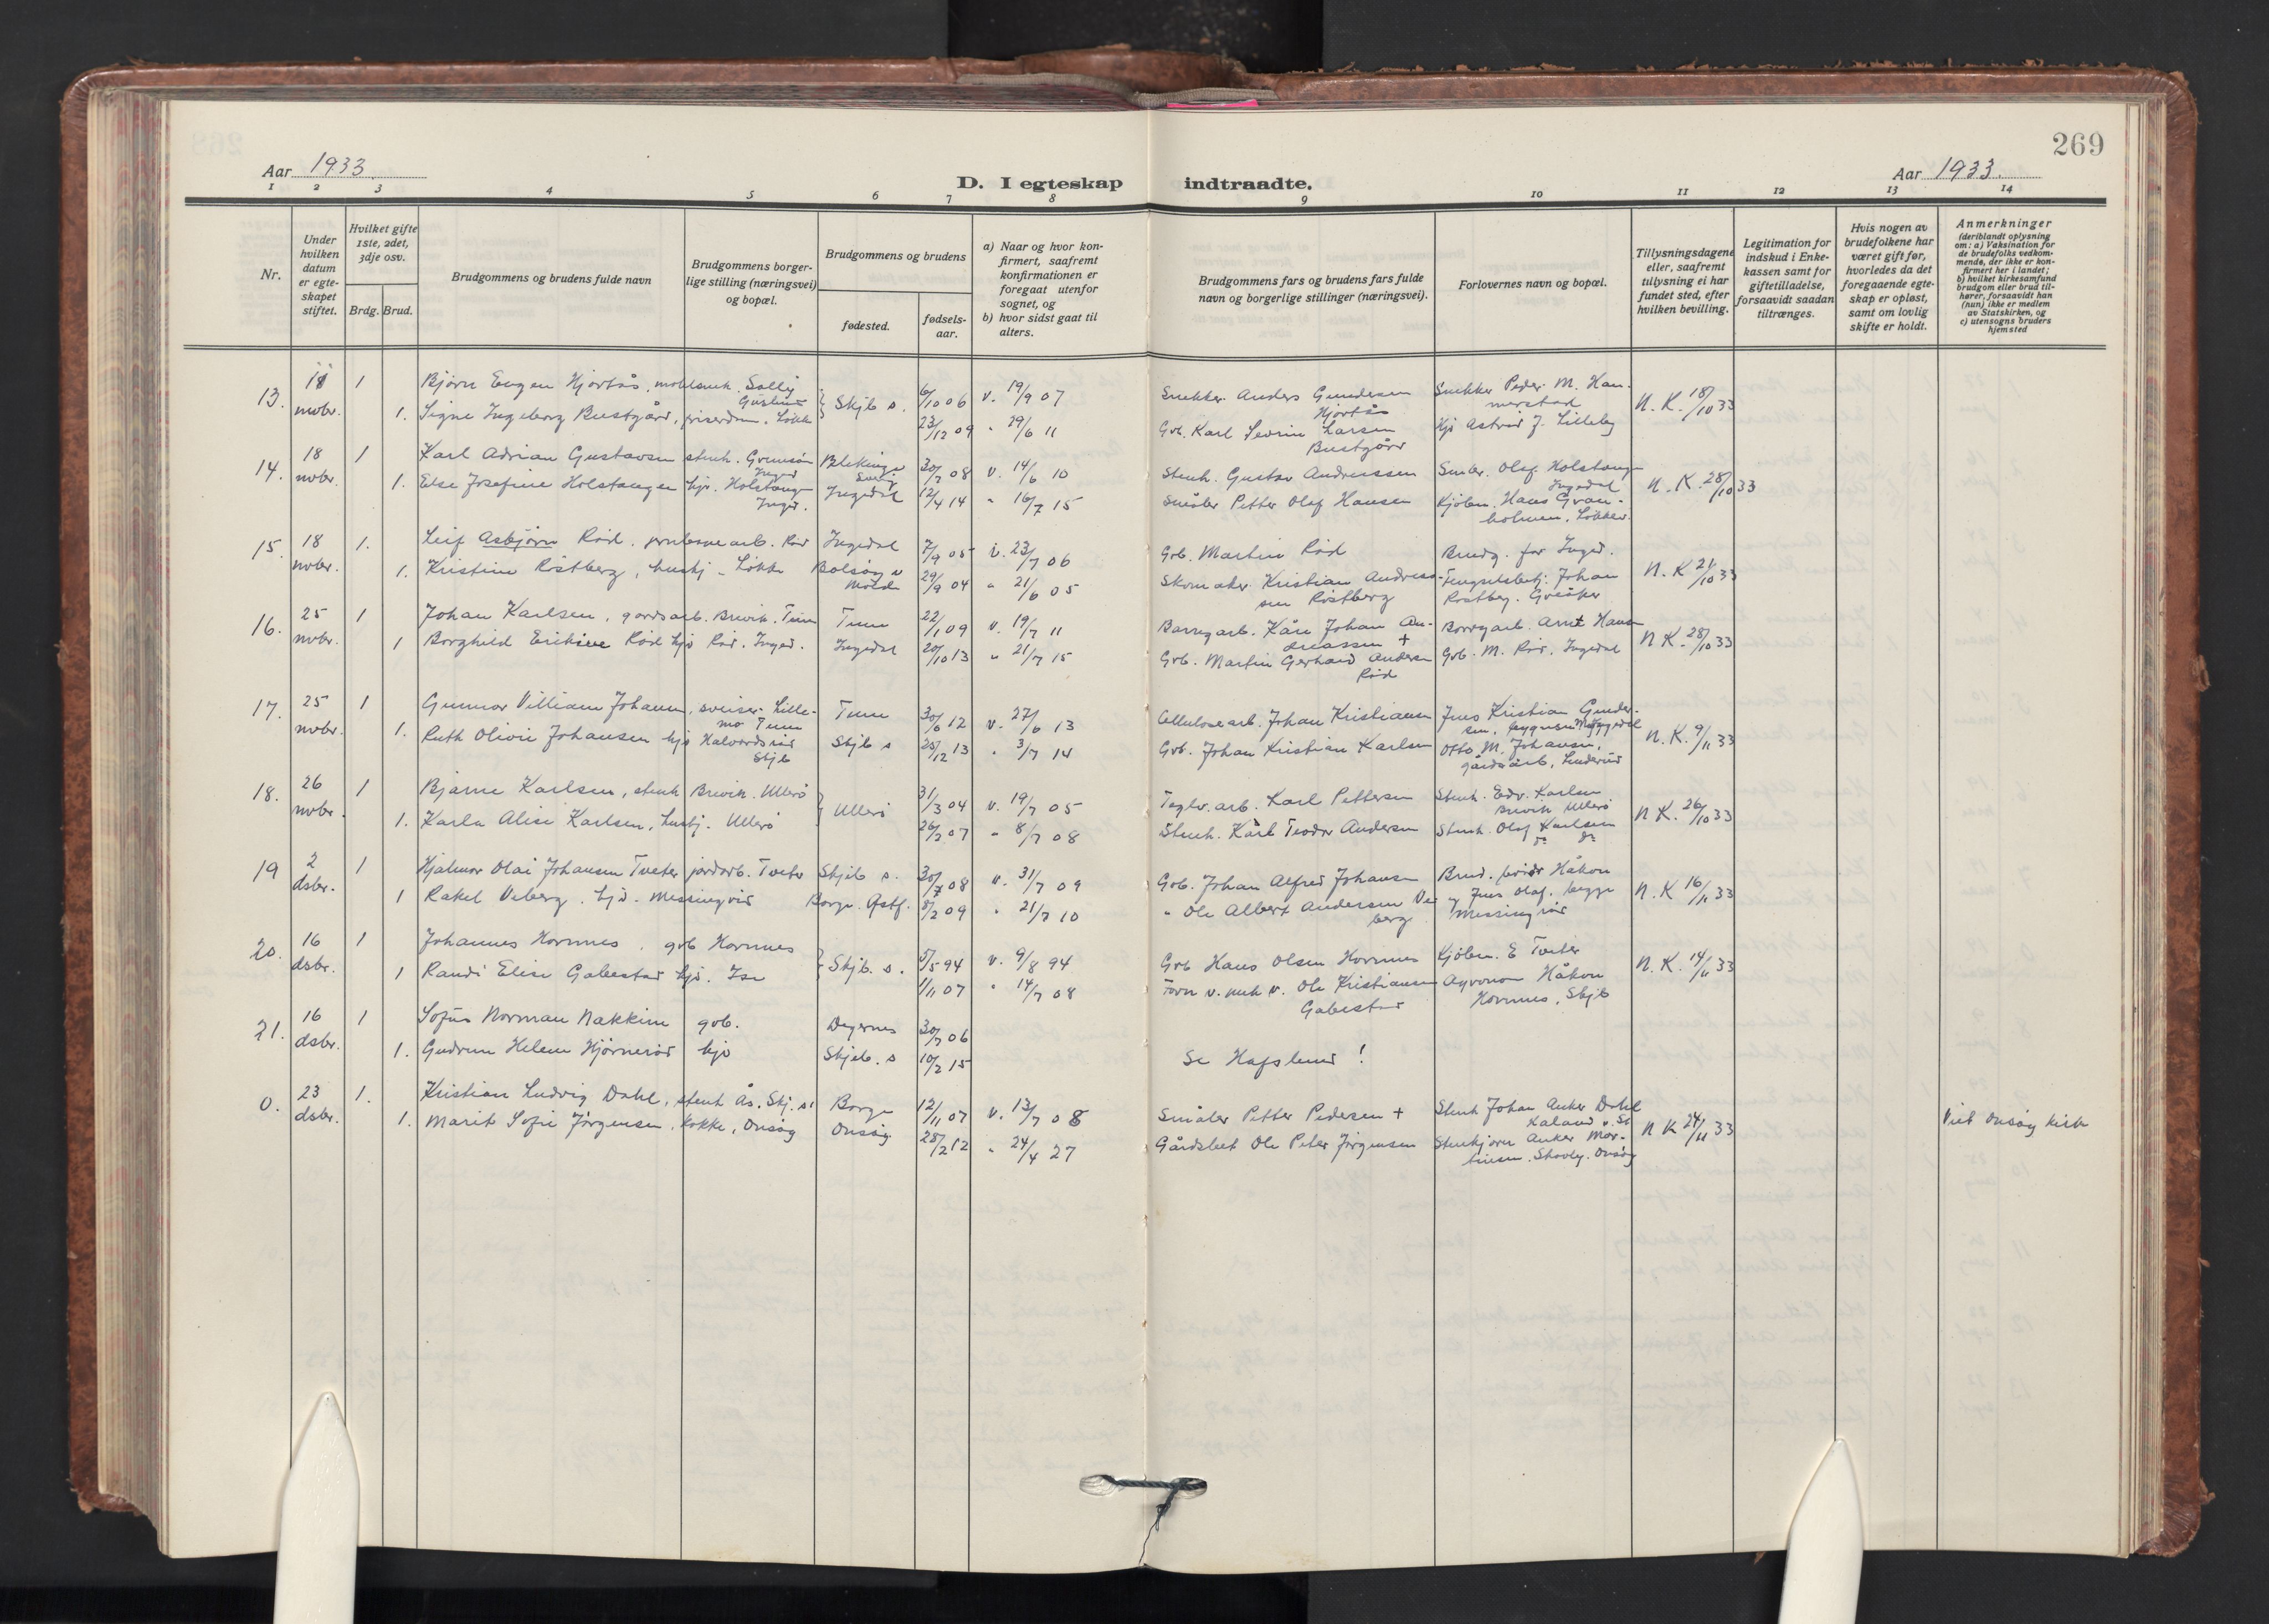 269
Aar 1933
D. I egteskap indtraadte.
Aar 1933.
1 2 3 4 5 6 7 8 9 10 11 12 13 14
Nr.
Under hvilken datum er egteskapet stiftet.
Hvilket gifte 1ste, 2det, 3dje osv.
Brdg. Brud.
Brudgommens og brudens fulde navn
Brudgommens borgerlige stilling (næringsvei) og bopæl.
Brudgommens og brudens
fødested.
fødselsaar.
a) Naar og hvor konfirmert, saafremt konfirmationen er foregaat utenfor sognet, og
b) hvor sidst gaat til alters.
Brudgommens fars og brudens fars fulde navn og borgerlige stillinger (næringsvei).
Forlovernes navn og bopæl.
Tillysningsdagene eller, saafremt tillysning ei har fundet sted, efter hvilken bevilling.
Legitimation for indskud i Enkekassen samt for giftetilladelse, forsaavidt saadan tiltrænges.
Hvis nogen av brudefolkene har været gift før, hvorledes da det foregaaende egteskap er opløst, samt om lovlig skifte er holdt.
Anmerkninger
(deriblandt oplysning om: a) Vaksination for de brudefolks vedkommende, der ikke er konfirmert her i landet; b) hvilket kirkesamfund brudgom eller brud tilhører, forsaavidt han (hun) ikke er medlem av Statskirken, og c) utensogns bruders hjemsted
13. novbr. 1 Bjørn Eugen Hjortås, Skjb s. 6/10 06 v. 19/9 07 Snekker Anders Gundersen Hjortås Snekker Peder M. Hammerstad N. K. 18/10 33
1. Signe Ingeborg Bustgård, 23/12 09 " 29/6 11 Gbr. Karl Severin Larsen Bustgård Hjv Astrid J. Lilleby
14. 18 novbr. 1 Karl Adrian Gustavsen stenh. Blekinge Sverig 30/7 08 v. 14/6 10 Stenh. Gustav Andreassen Småbr. Olaf Holstangen Ingedal N. K. 28/10 33
1. Else Josefine Holstangen hjv. Holstangen Inged. Ingedal 12/4 14 " 16/7 15 Småbr Petter Olaf Hansen Kjøbm. Hans Granholmen, Løkkev.
15. 18 novbr. 1. Leif Asbjørn Rød. Rød Ingedal 7/9 05 v. 23/7 06 Grb. Martin Rød Brudg. far Inged. N. K 21/10 33
1. Kristine Røstberg, hushj. Løkke Bolsøy v Molde 29/9 04 " 21/6 05 Skomaker Kristian Andreassen Røstberg Fengselsbetj. Johan Røstberg. Greåker
16. 25 novbr. 1 Johan Karlsen, gårdsarb. Brevik. Tune Tune 22/1 09 v. 19/7 11 Borregarb. Kåre Johan Andreassen + Borregarb. Arnt Hansen N K. 28/10 33
1 Borghild Eriksine Rød hjv Rød. Inged. Ingedal 20/10 13 " 21/7 15 Grb. Martin Gerhard Andersen Rød Grb. M. Rød, Ingedal
17. 25 novbr. 1 Gunnar Villiam Johansen, sveiser. Lillemo Tune Tune 30/6 12 v. 27/6 13 Cellulosearb. Johan Kristiansen Jens Kristian Gundersen, N. K. 9/11 33
1. Ruth Olivie Johansen hjv Halvordsrød Skjb Skjb s 25/12 13 " 3/7 14 Grb. Johan Kristian Karlsen Otto M. Johansen, gårdsarb, Linderud
18. 26 novbr. 1 Bjarne Karlsen, stenh Brevik. Ullerø Ullerø 31/3 04 v. 19/7 05 Teglv. arb. Karl Pettersen Stenh. Edv. Karlsen Brevik Ullerø N K. 26/10 33
1. Karla Alise Karlsen, hushj. Ullerø 26/2 07 " 8/7 08 Stenh. Kårl Teodor Andersen Stenh. Olaf Karlsen
19 2 dsbr. 1 Hjalmar Olai Johansen Tveter jordarb. Tveter Skjeb s. 30/7 08 v. 31/7 09 Grb. Johan Alfred Johansen Brud. brødr Håkon N. K 16/11 33
1 Rakel Veberg. hjv. Messingrød Borge. Østf. 8/2 09 " 21/7 10 " Ole Albert Andersen Veberg og Jens Olaf. begge Messingrød
20. 16 dsbr. 1 Johannes Hornnes. grb Hornnes Skjb. s. 5/5 94 v. 9/8 94 Grb Hans Olsen Hornnes Kjøbm. E Tveter N. K. 14/11 33
1 Randi Elise Gabestad hjv. Ise 1/11 07 " 14/7 08 Ole Kristiansen Gabestad Agronom Håkon Hornnes, Skjb
21. 16 dsbr. 1 Sofus Norman Nakkim grb. Degernes 30/7 06
1. Gudrun Helene Hjørnerød hjv Skjeb. s 10/2 15 Se Hafslund!
0. 23 dsbr. 1. Kristian Ludvig Dahl, stenh Ås. Skj. s. Borge 12/11 07 v. 13/7 08 Småbr Petter Pedersen + Stenh Johan Anker Dahl N K 24/11 33 Viet Onsøy kirke
1. Marit Sofie Jörgensen, kokke, Onsøy Onsøy 28/2 12 " 24/4 27 Gårdsbest Ole Peter Jörgensen Stenhjørn Anker Martinsen. Skovly. Onsøy